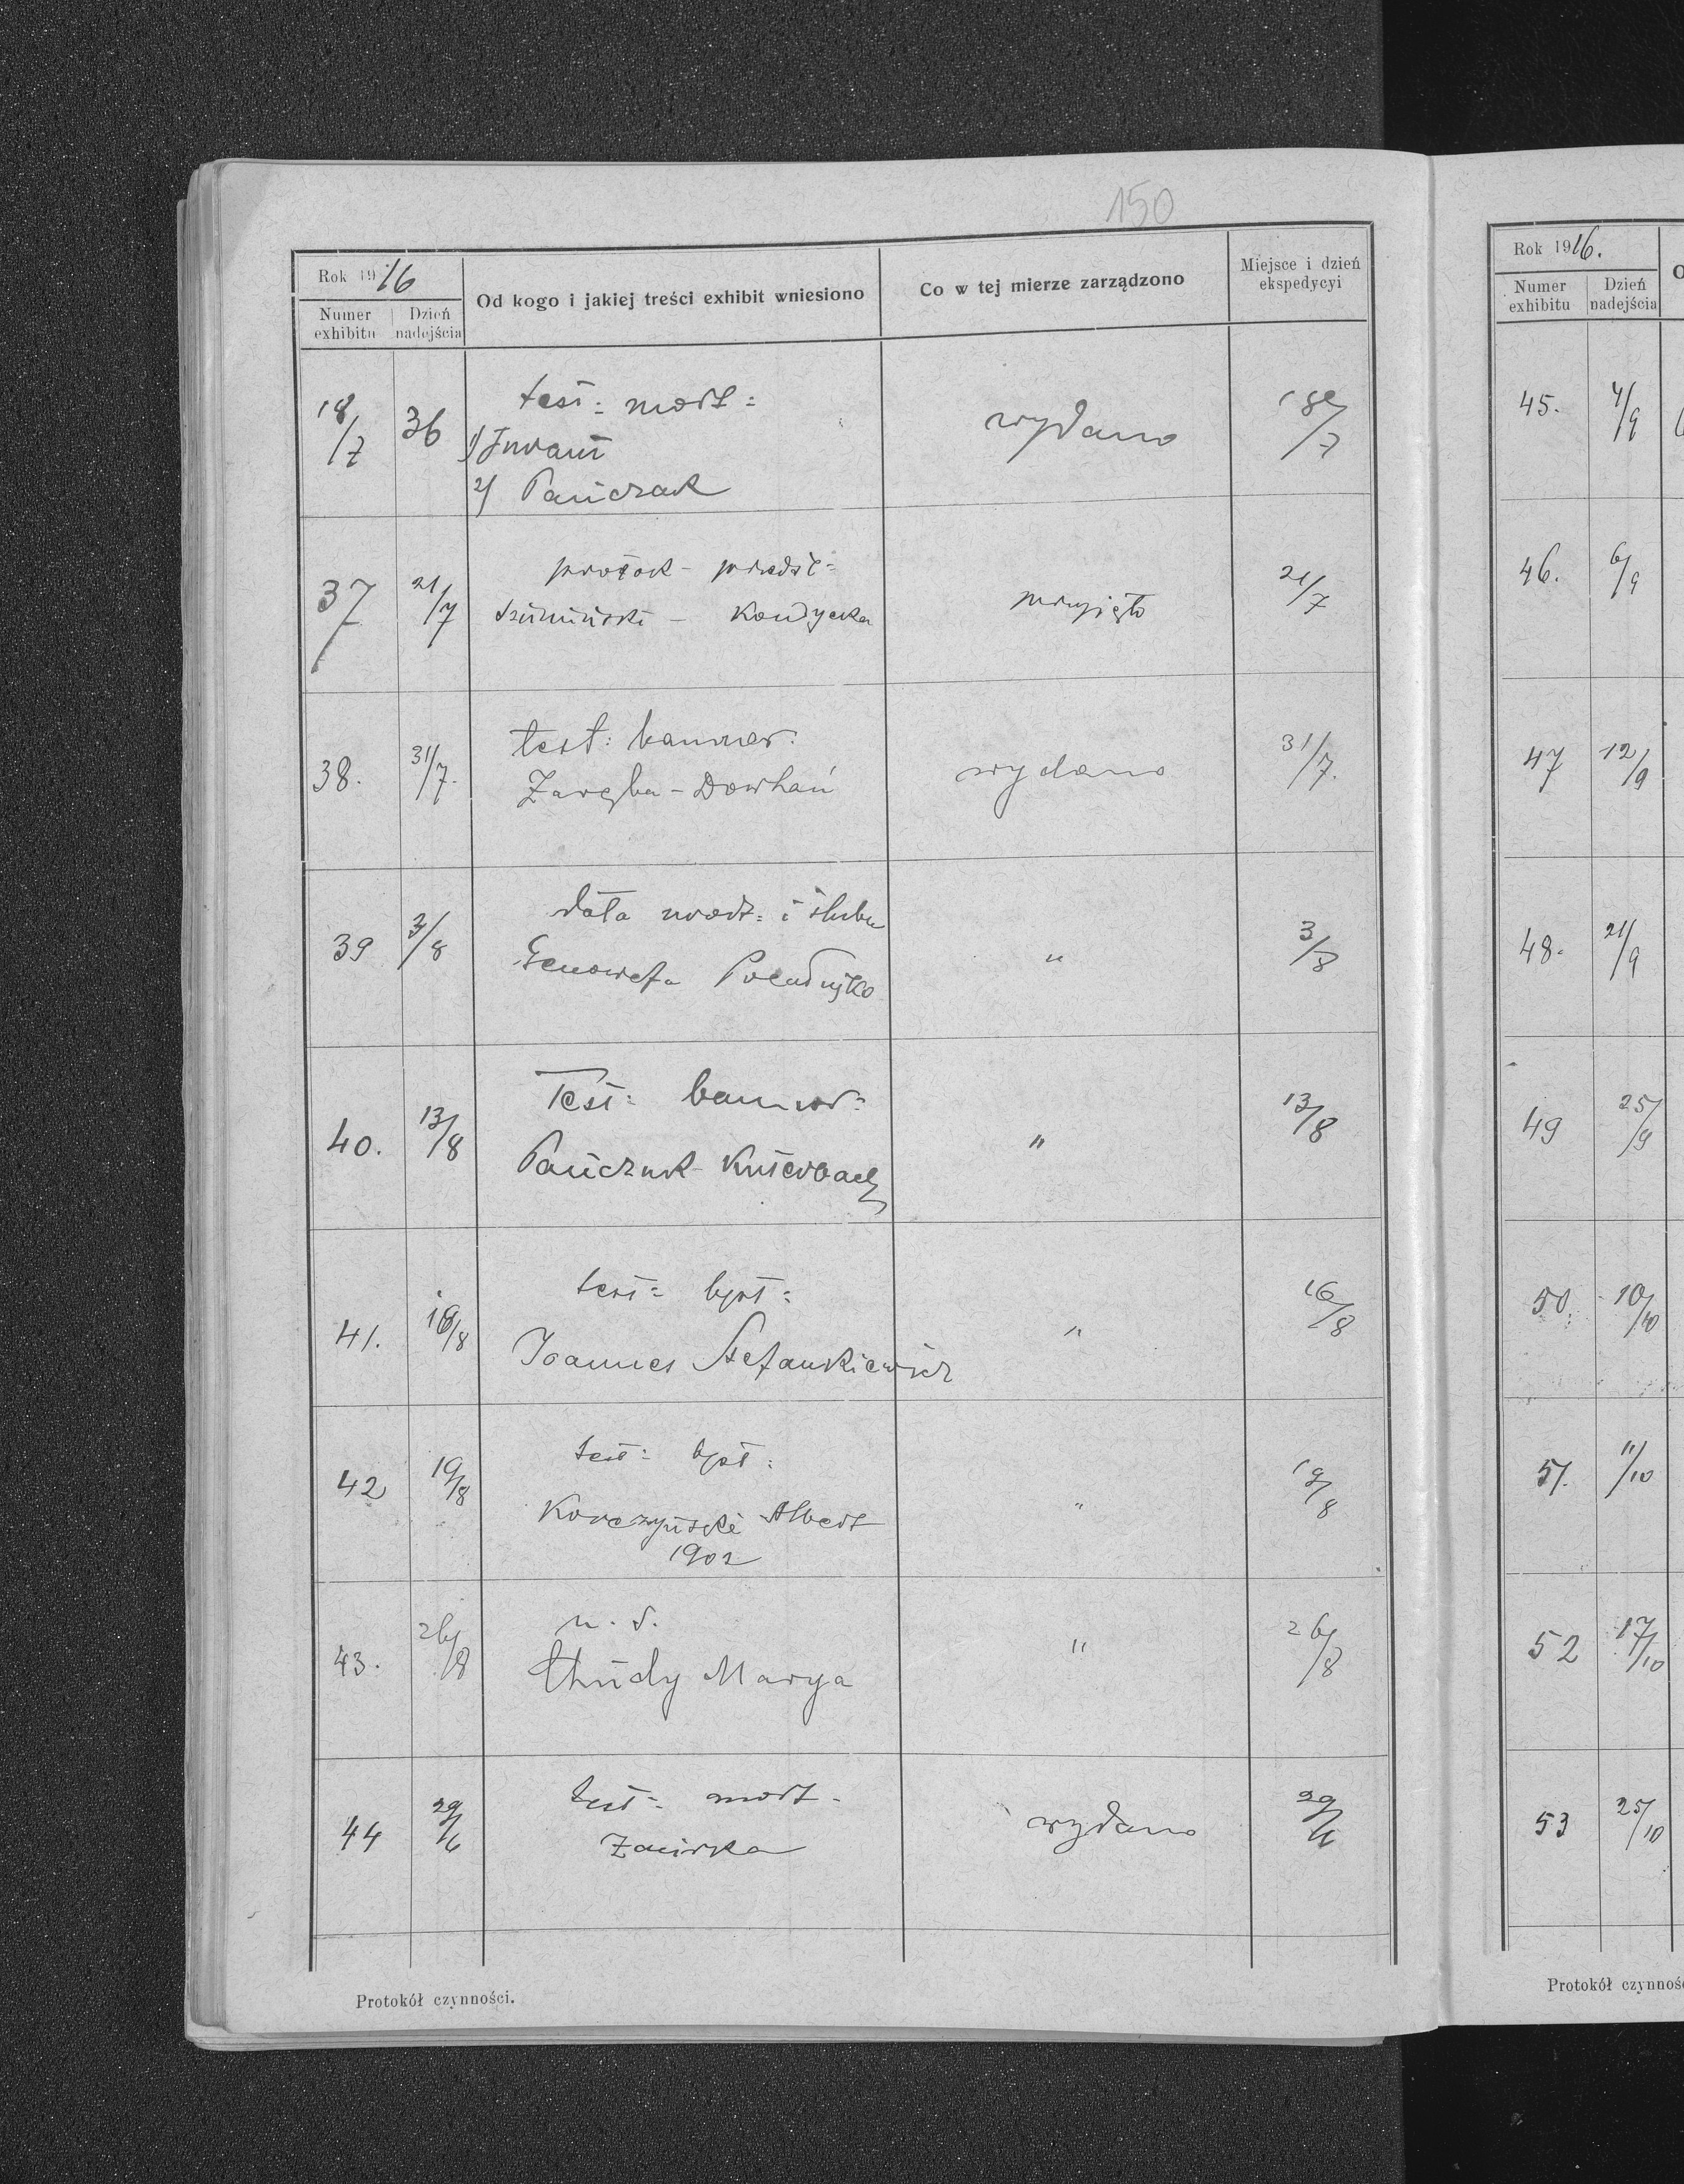 150
Rok 1916
Numer exhibitu
Dzień nadejścia
Od kogo i jakiej treści exhibit wniesiono
Co w tej mierze zarządzono
Miejsce i dzień ekspedycyi
18/7 36 test: mort: wydano 18/7
1)
2) Pańczak
37 21/7 przyjęto 21/7
38. 31/7. test: banner: wydano 31/7.
Zaręba - Dowhań
39 3/8 data urodz: i ślubu " 3/8
Genowefa
40. 13/8 Test: banner: " 13/8
Pańczuk -
41. 16/8 test: bpt: " 16/8
Joannes Stefankiewicz
42 19/8 test: bpt: " 19/8
Korczyński Albert
1902
43. 26/8 " 26/8
Chudy Marya
44 test: mort. wydano
Protokół czynności.
Rok 1916.
Numer exhibitu
Dzień nadejścia
45. 4/9
46. 6/9
47 12/9
48. 21/9
49 25/9
50. 10/10
51. 11/10
52 17/10
53 25/10
Protokół czynnoś